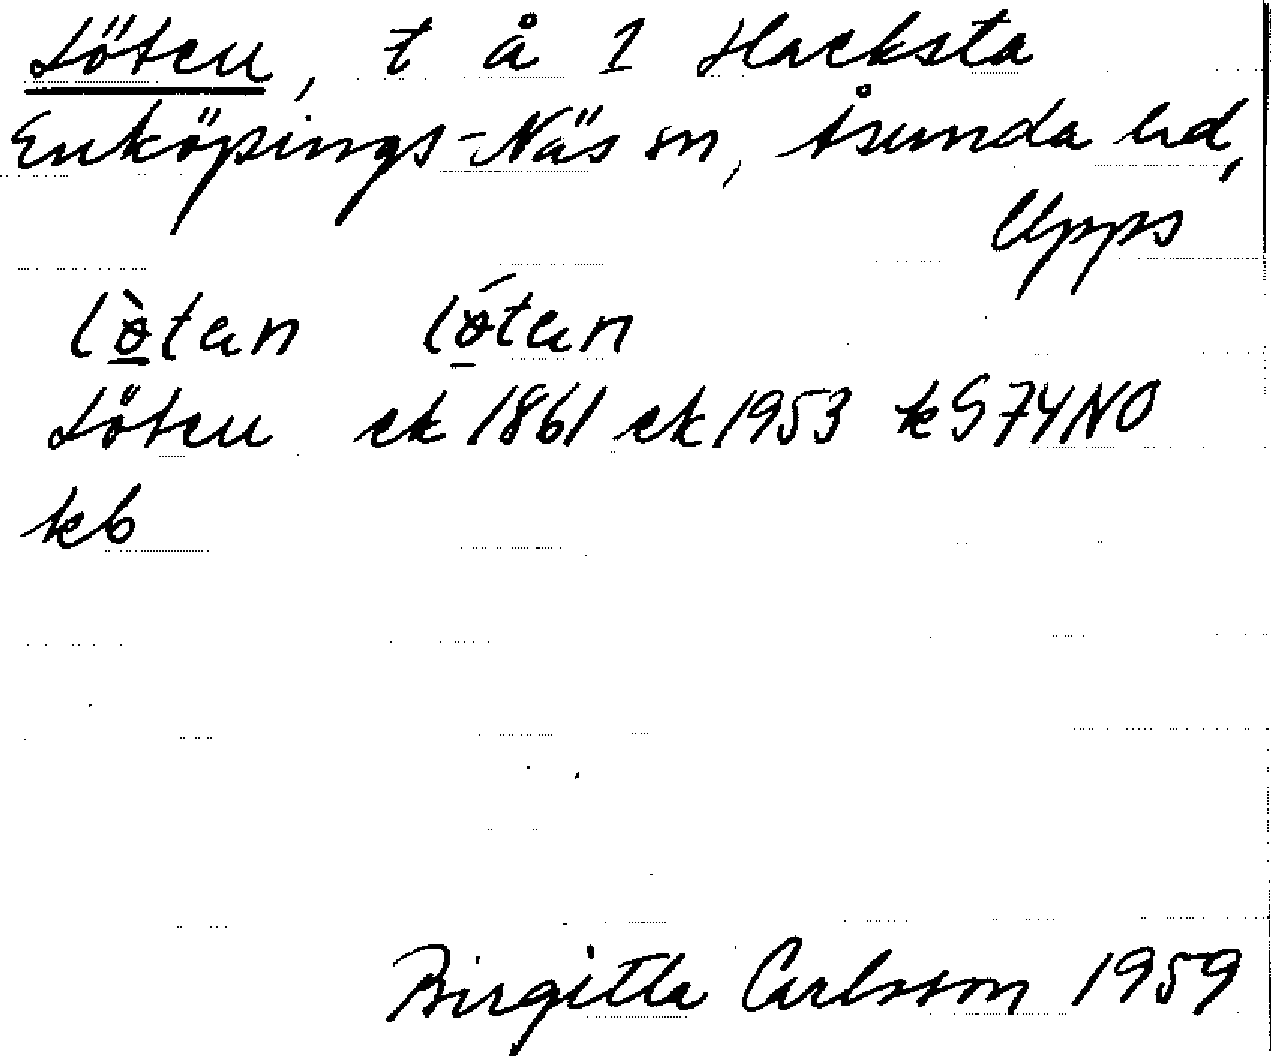 Löten, t å 1 Hacksta
Enköpings-Näs sn, Åsunda hd,
Upps
lø̀tan lǿtan
Löten ek 1861 ek 1953 k S74NO
kb
Birgitta Carlsson 1959